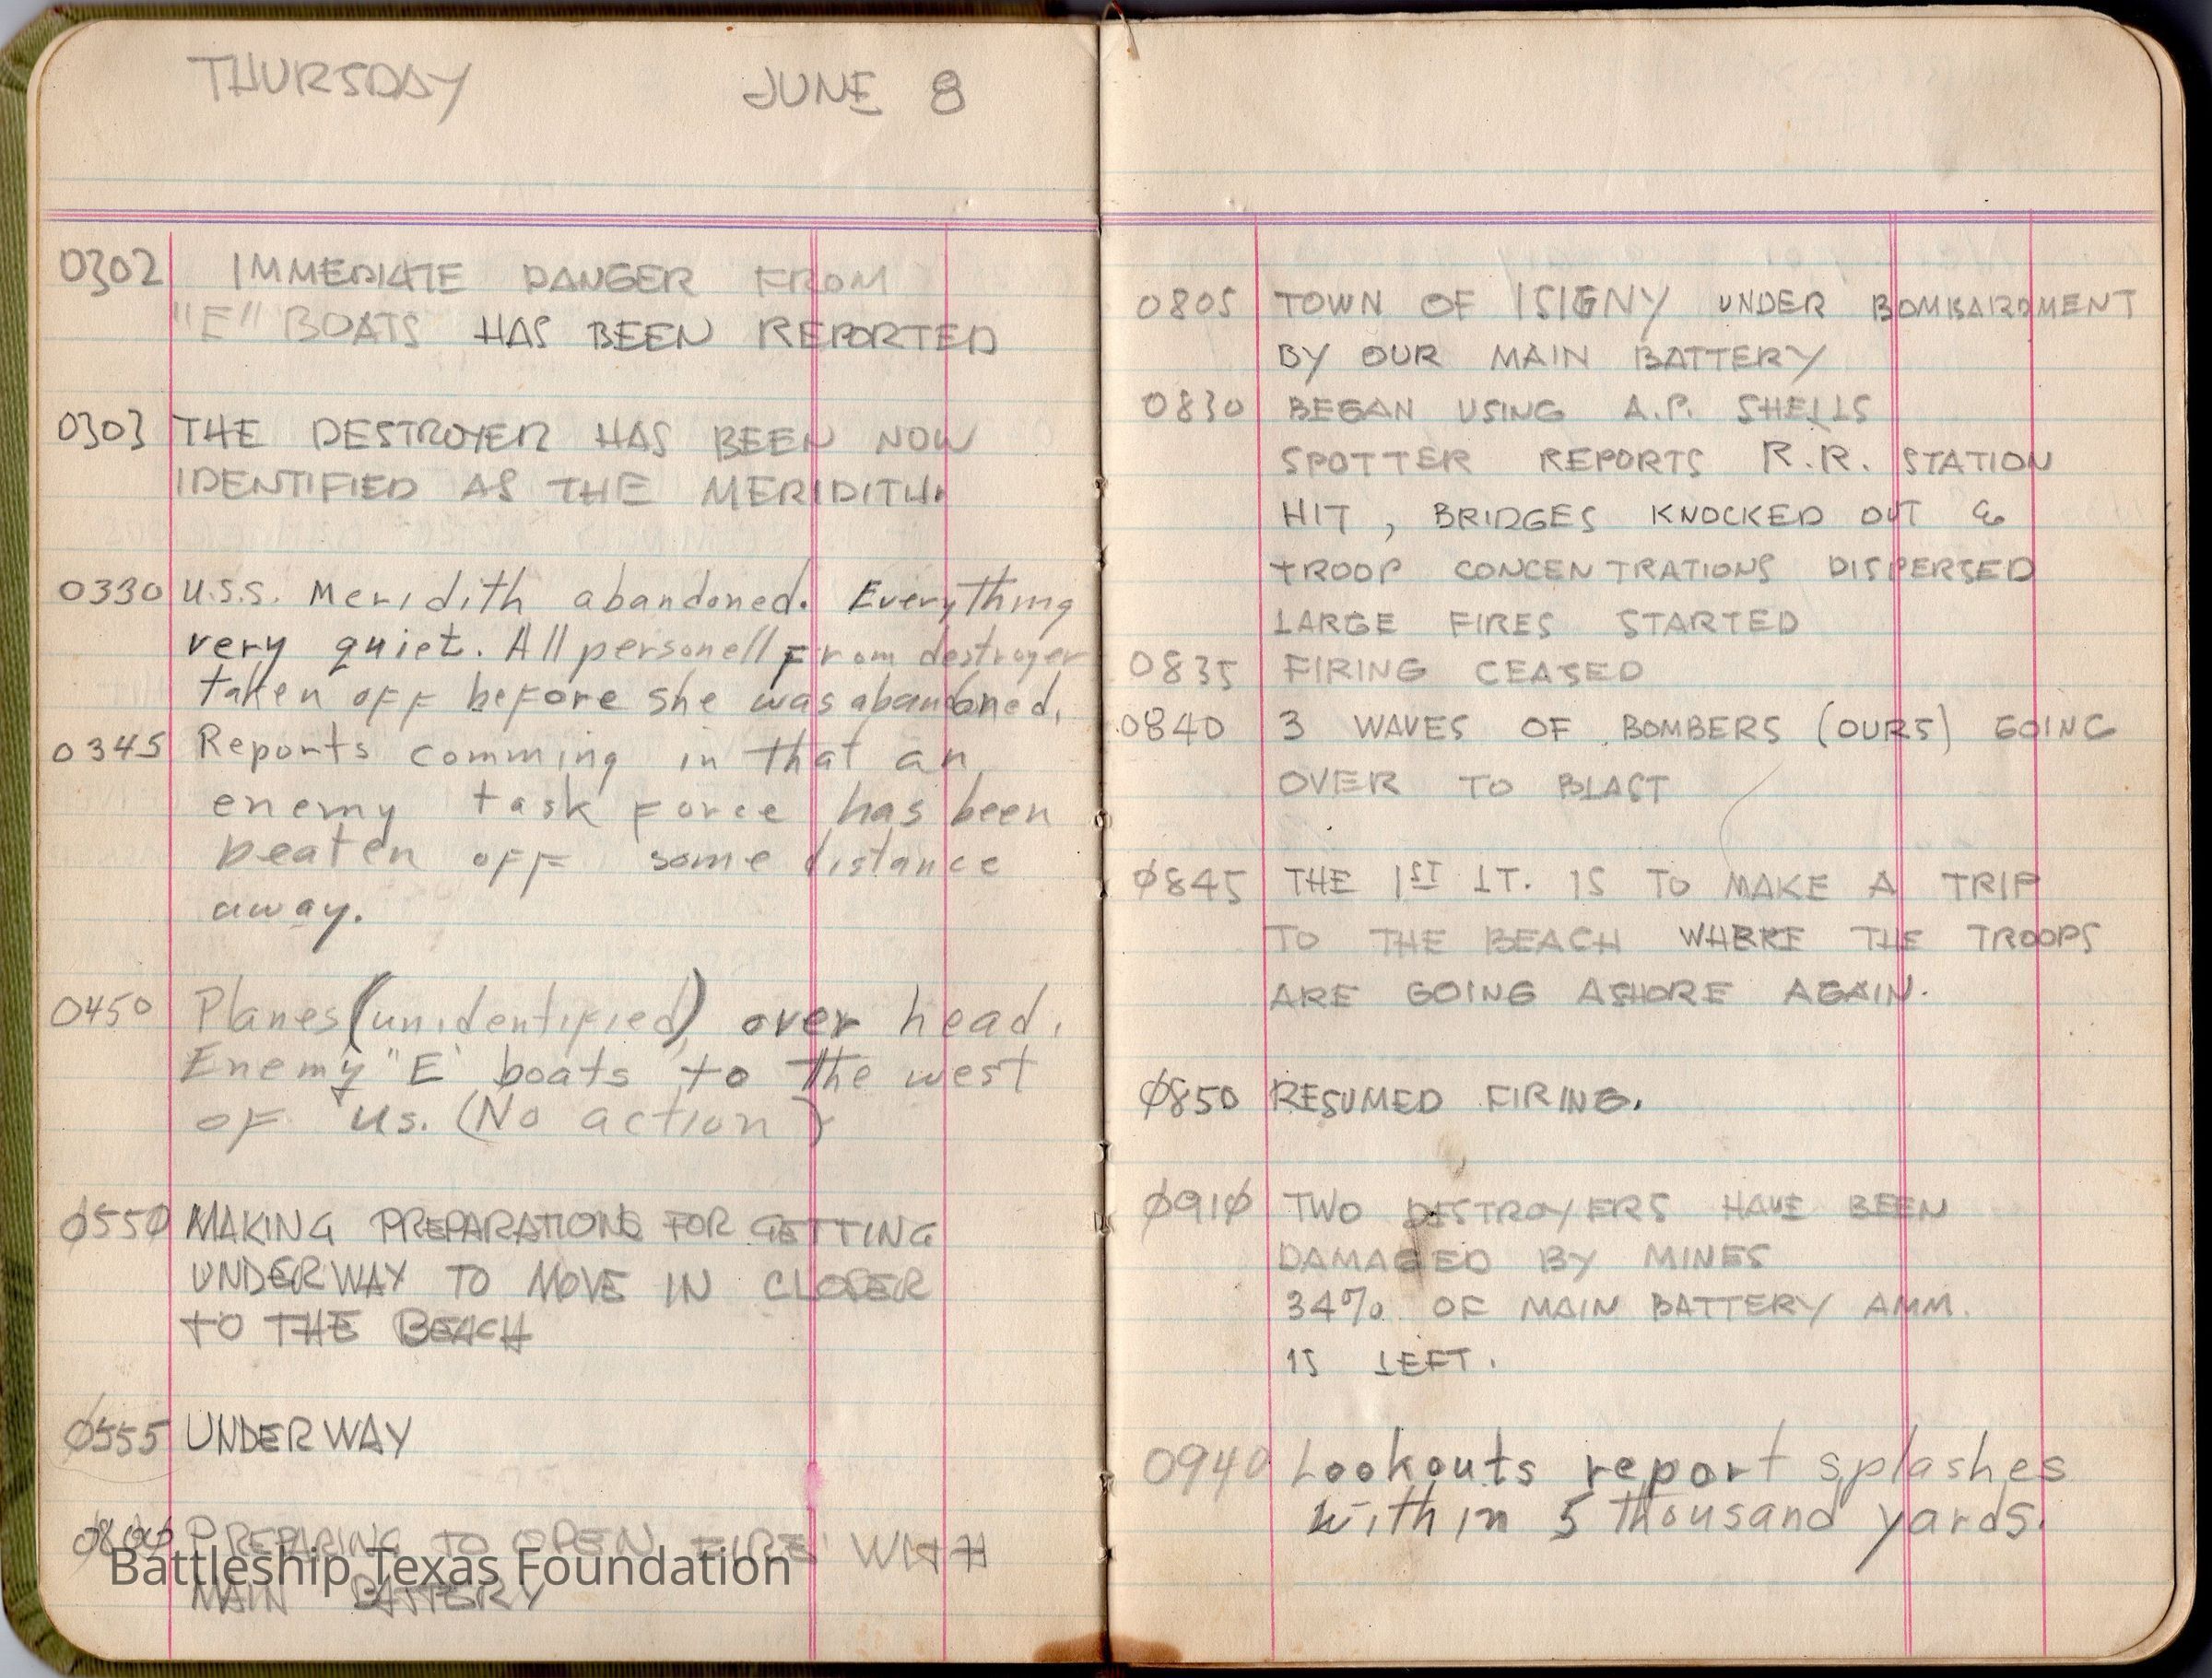 THURSDAY JUNE 8
0302 IMMEDIATE DANGER FROM
"E" BOATS HAS BEEN REPORTED
0303 THE DESTROYER HAS BEEN NOW
IDENTIFIED AS THE MERIDITH.
0330 U.S.S. Meridith abandoned. Everything
very quiet. All personell From destroyer
taken off before she was abandoned.
0345 Reports comming in that an
enemy task Force has been
beaten off some distance
away.
0450 Planes (unidentified) over head.
Enemy "E" boats to the west
of us. (No action)
0550 MAKING PREPARATIONS FOR GETTING
UNDERWAY TO MOVE IN CLOSER
TO THE BEACH
0555 UNDERWAY
0800 PREPARING TO OPEN FIRE WITH
MAIN BATTERY
Battleship Texas Foundation
0805 TOWN OF ISIGNY UNDER BOMBARDMENT
BY OUR MAIN BATTERY
0830 BEGAN USING A.P. SHELLS
SPOTTER REPORTS R.R. STATION
HIT, BRIDGES KNOCKED OUT &
TROOP CONCENTRATIONS DISPERSED
LARGE FIRES STARTED
0835 FIRING CEASED
0840 3 WAVES OF BOMBERS (OURS) GOING
OVER TO BLAST
0845 THE 1ST LT. IS TO MAKE A TRIP
TO THE BEACH WHERE THE TROOPS
ARE GOING ASHORE AGAIN.
0850 RESUMED FIRING.
0910 TWO DESTROYERS HAVE BEEN
DAMAGED BY MINES
34% OF MAIN BATTERY AMM.
IS LEFT.
0940 Lookouts report splashes
within 5 thousand yards.